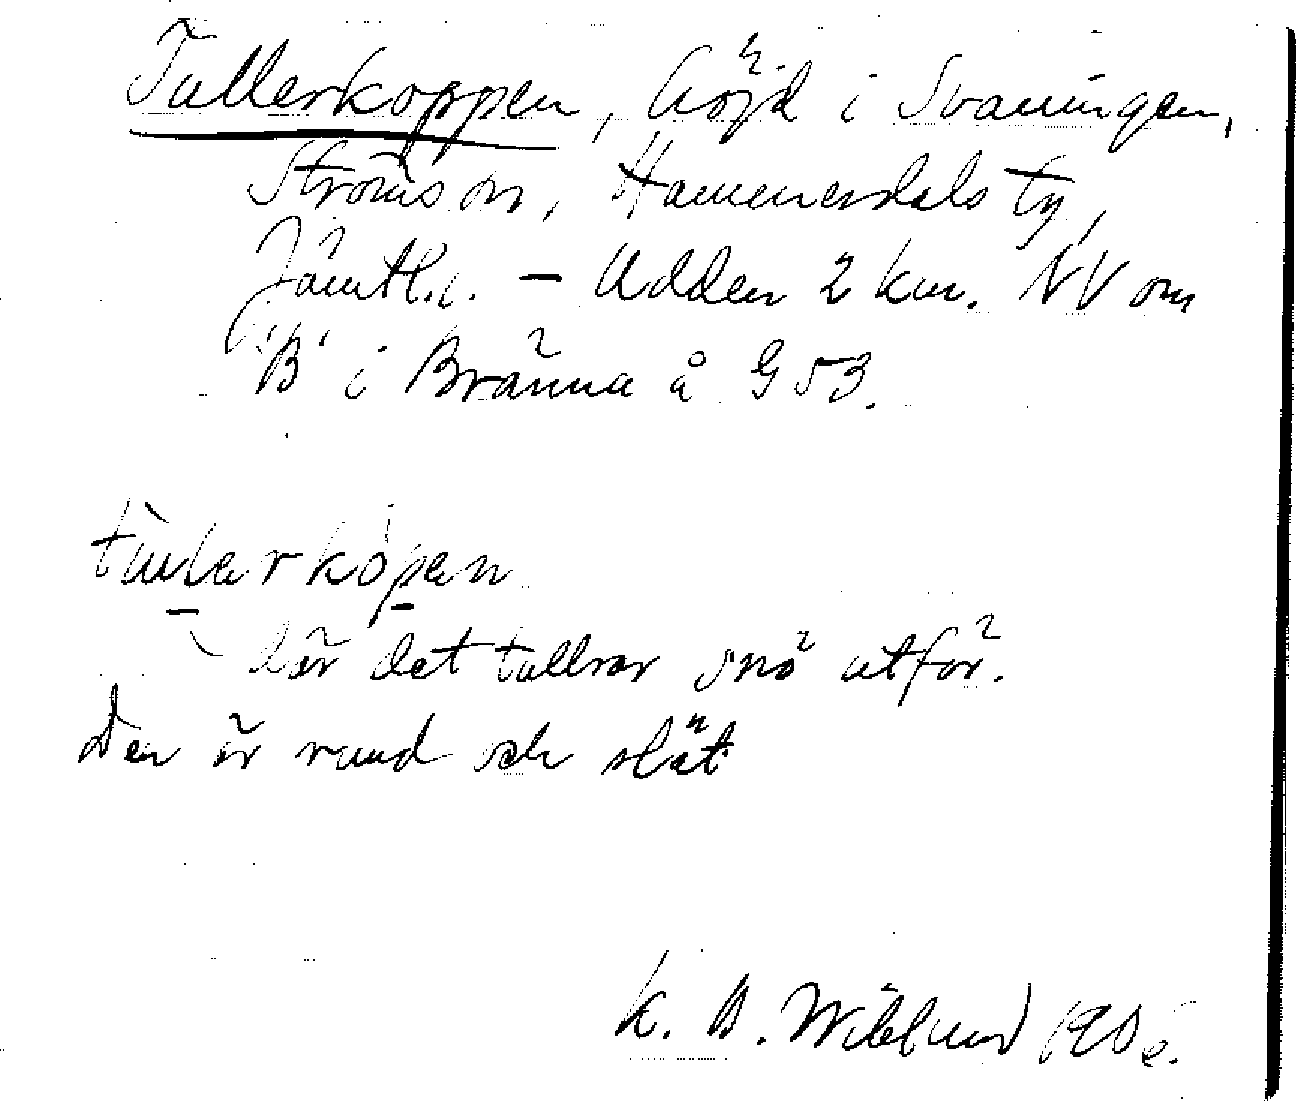 Tullerkoppen, höjd i Svaningen,
Ströms sn, Hammerdals tg,
Jämtl.l. – Udden 2 km. NV om
'B' i Bränna å G 53.
där det tullrar snö utför.
Den är rund och slät.
K. B. Wiklund